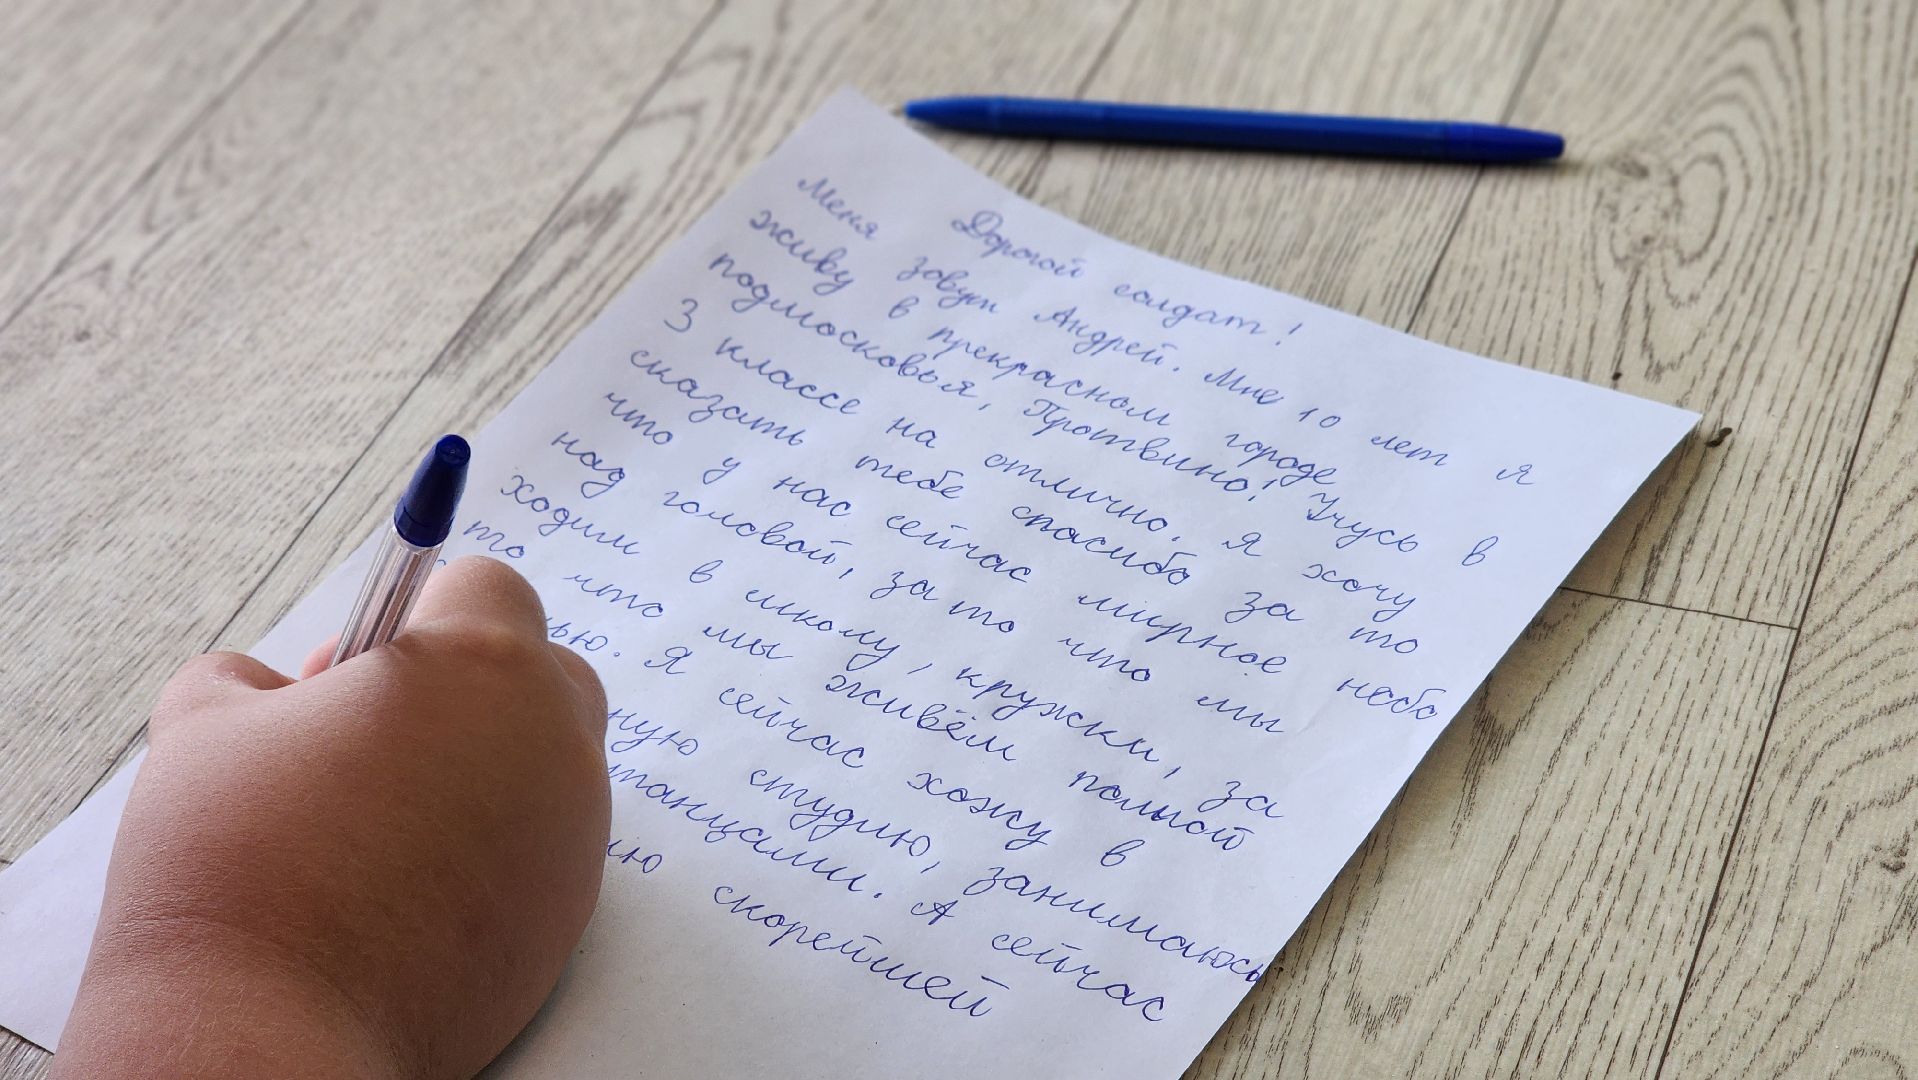 Дорогой солдат!
Меня зовут Андрей. Мне 10 лет я
живу в прекрасном городе
подмосковья, Протвино! Учусь в
3 классе на отлично. Я хочу
сказать тебе спасибо за то
что у нас сейчас мирное небо
над головой, за то что мы
ходим в школу, кружки, за
то что мы живём полной
ью. Я сейчас хожу в
ную студию, занимаюсь
танцами. А сейчас
ю скорейшей